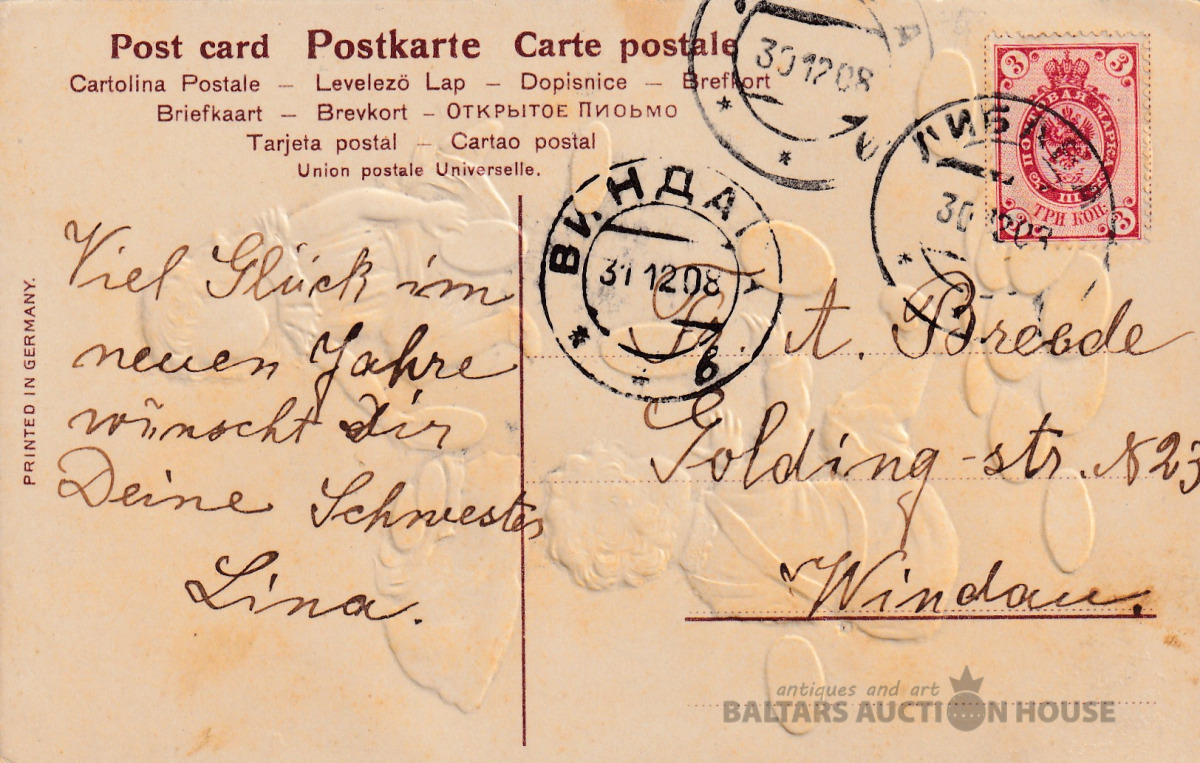 Post card Postkarte Carte postale
Cartolina Postale – Levelezö Lap – Dopisnice – Brefkort
Briefkaart – Brevkort – ОТКРЫТОЕ ПИОЬМО
Tarjeta postal – Cartao postal
Union postale Universelle.
30 12 08
3 3
ПОЧТОВАЯ МАРКА
ТРИ КОП.
3 3
ЛИБАВА
30
ВИНДАВА
31 12 08
в
PRINTED IN GERMANY.
Viel Glück im
neuen Jahre
wünscht dir
Deine Schwester
Lina.
Fr. A. Breede
Golding-str. N 23
Windau.
antiques and art
BALTARS AUCTION HOUSE